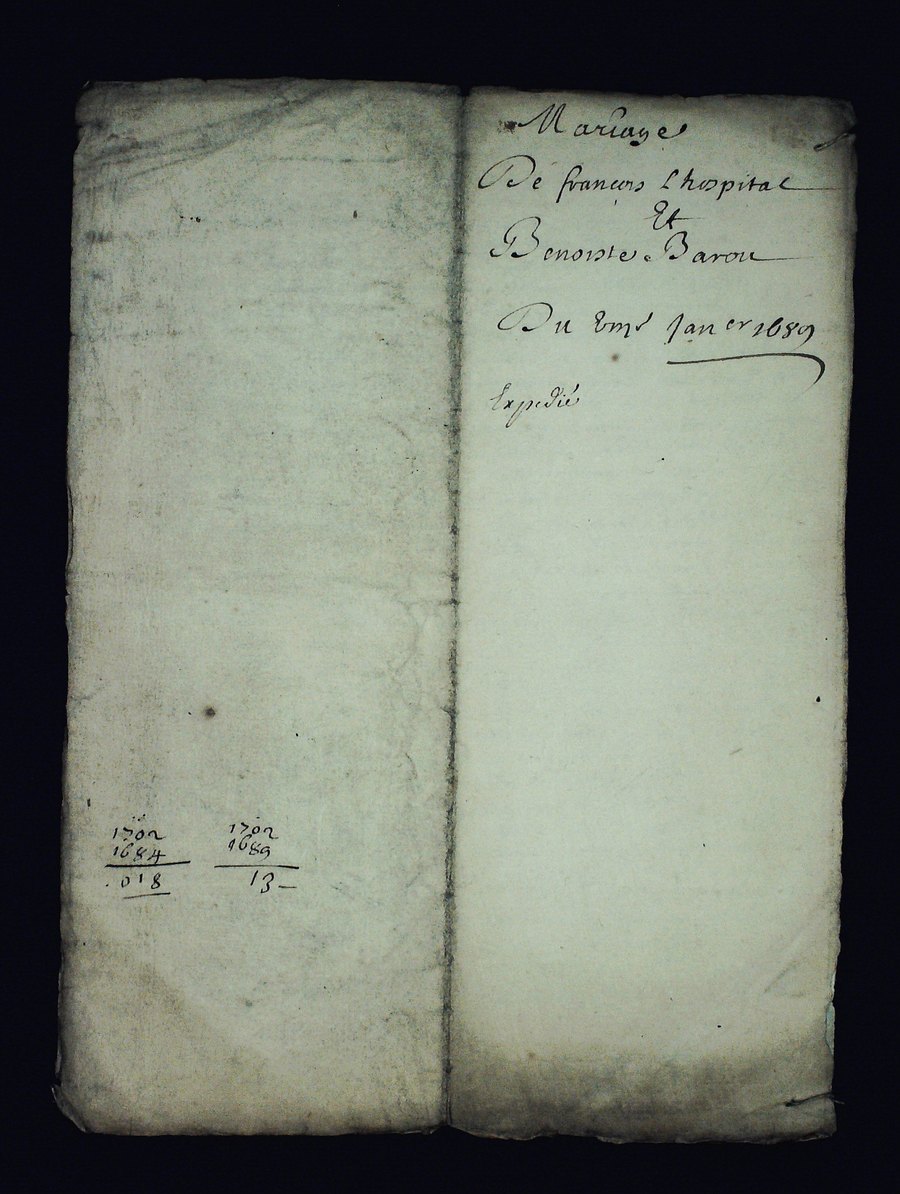 1702
1684
018
1702
1689
13
Mariage
De françois Lhospital
Et
Benoiste Barou
Du Janer 1689
Expedié